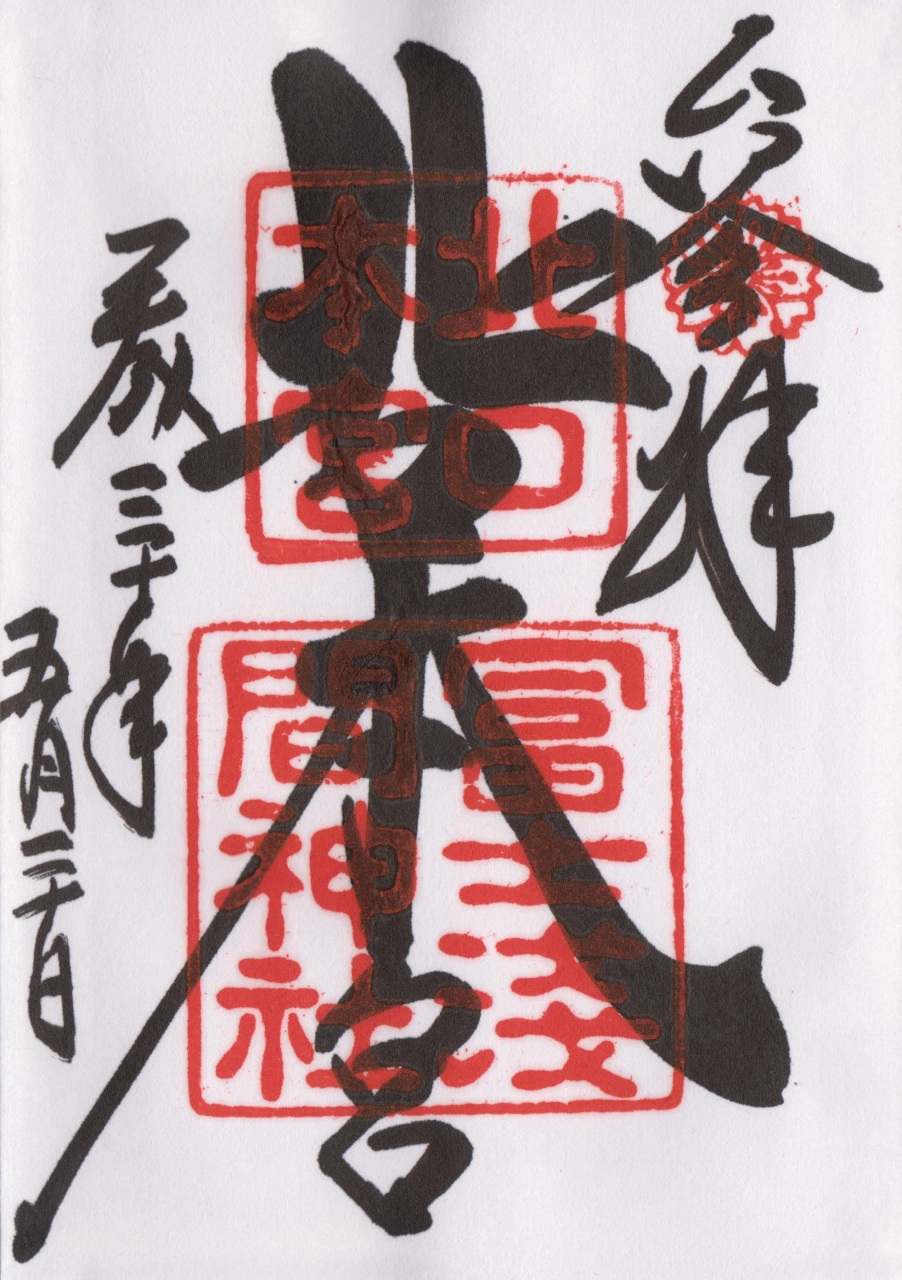 參拝
北口本宮
平成三十年
五月二十日
北口
本宮
冨士淺
間神社